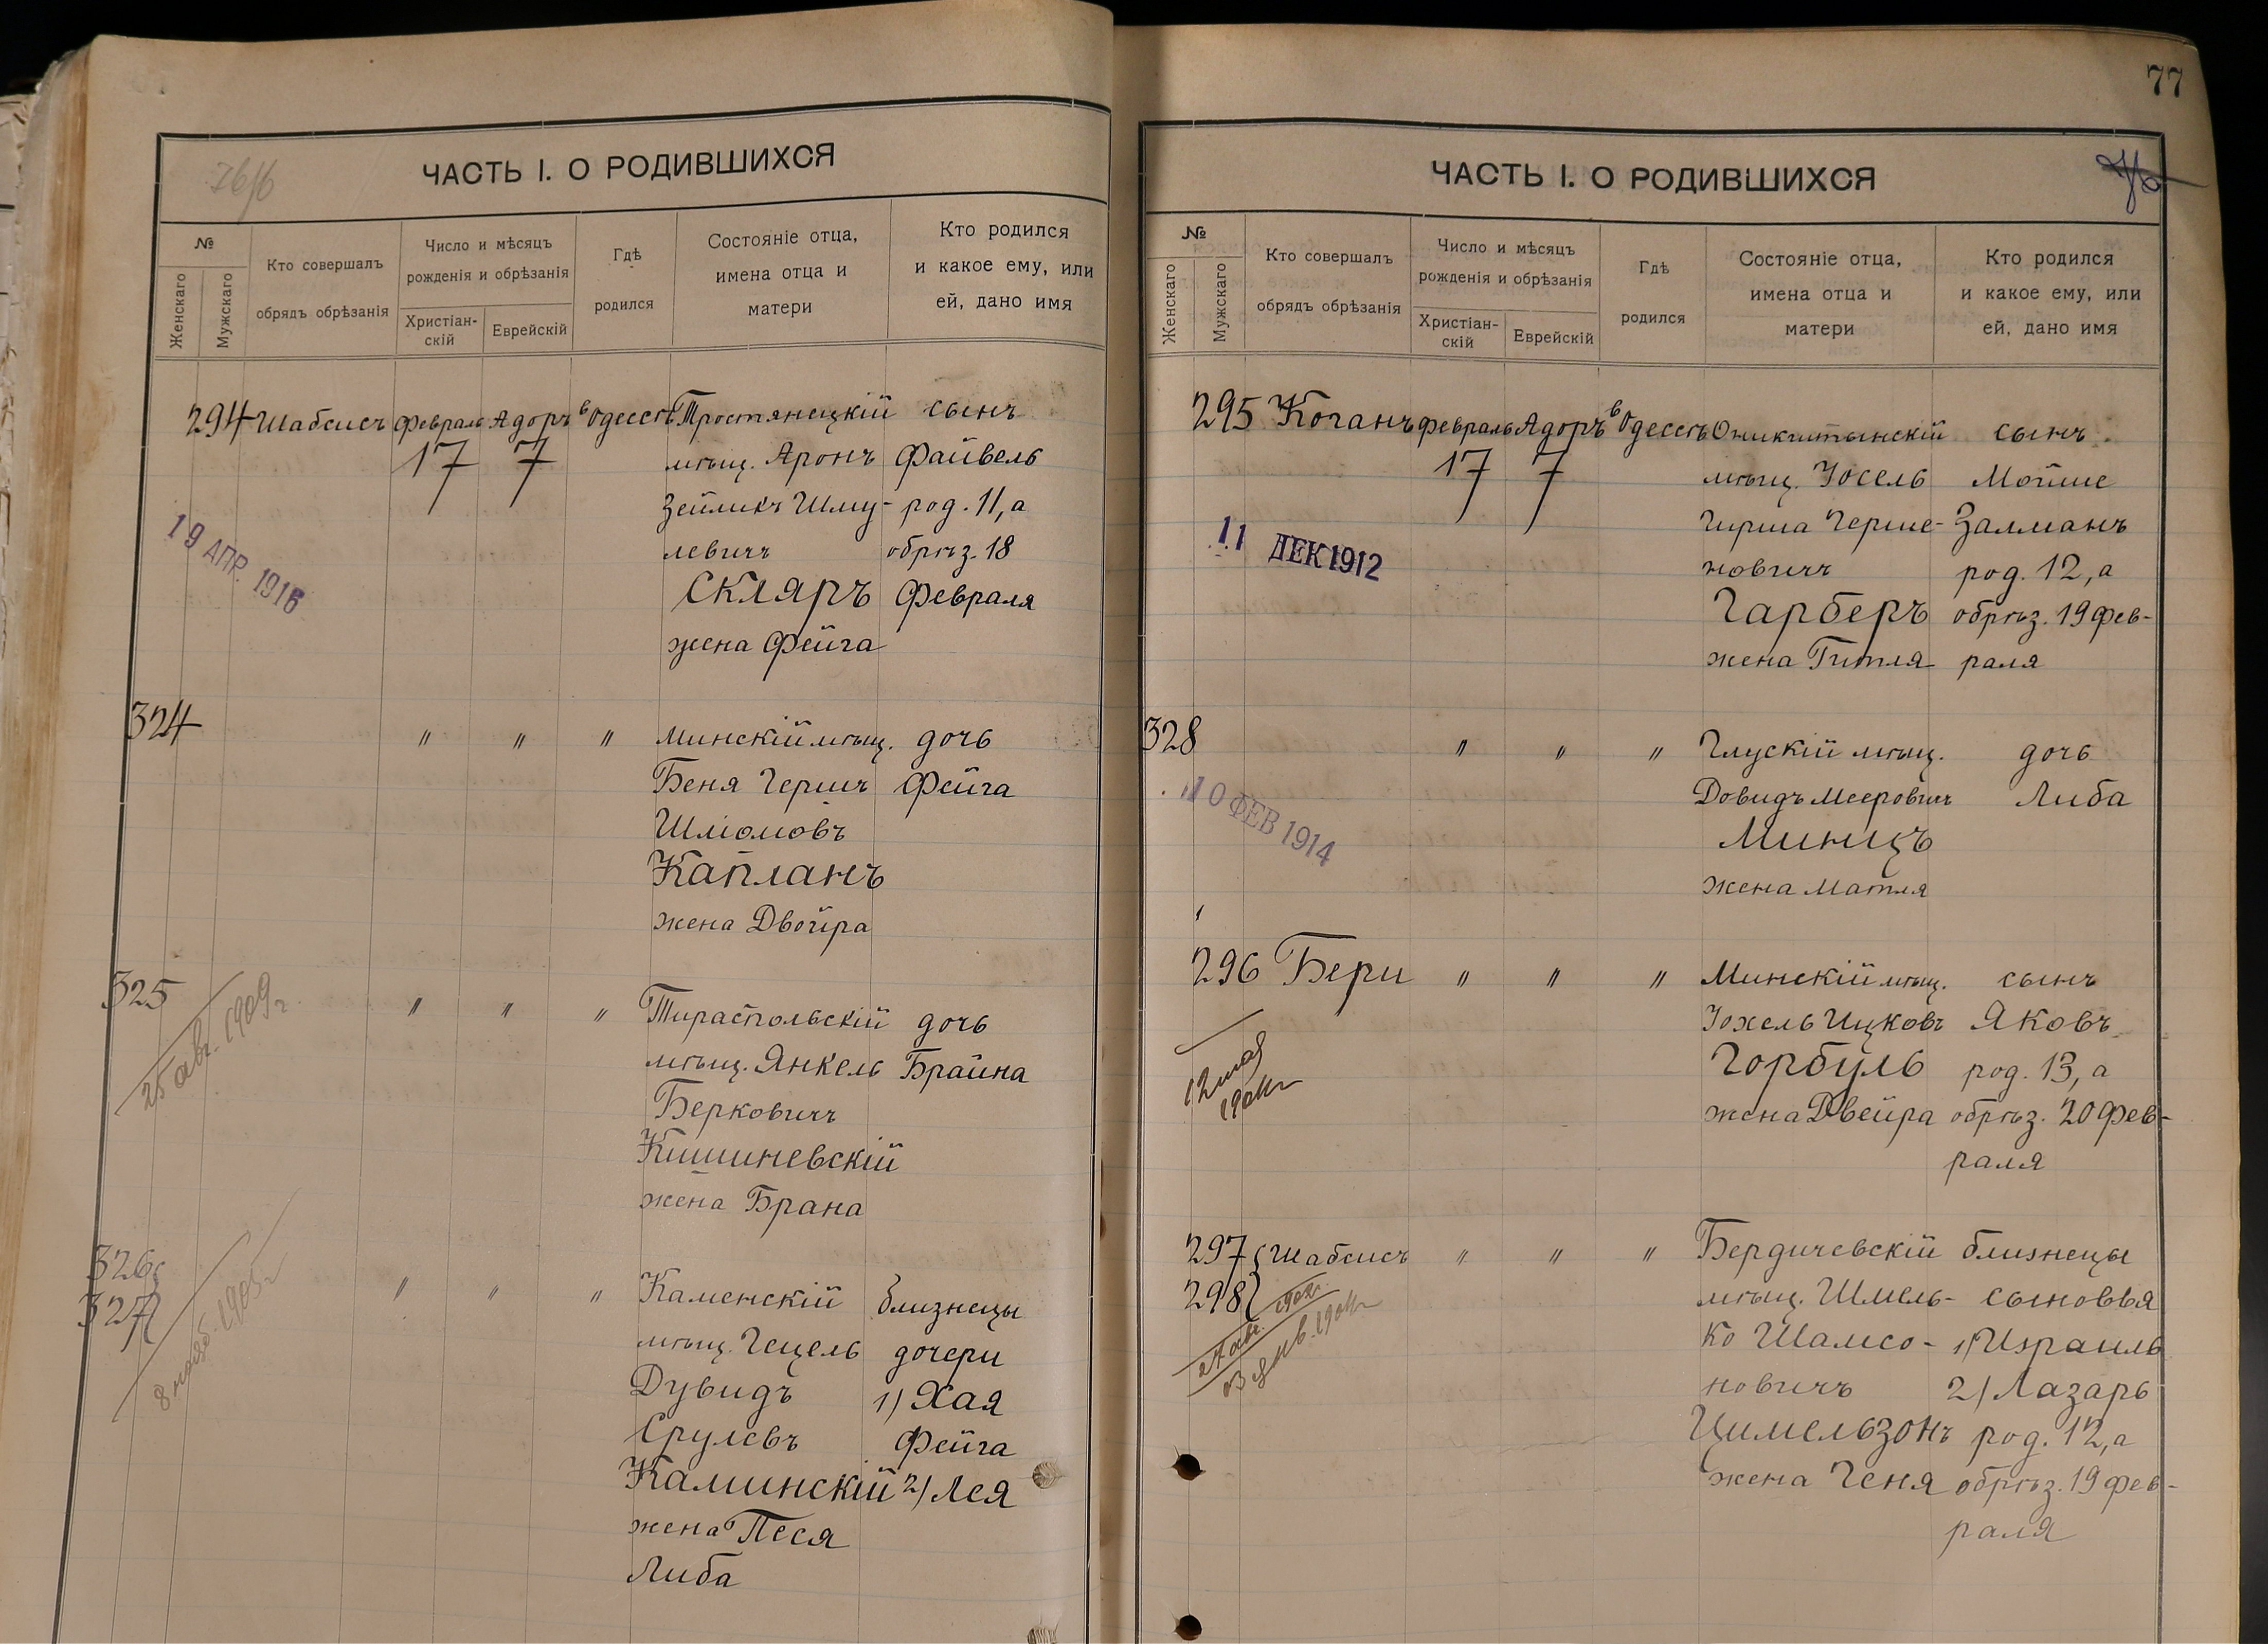 77
ЧАСТЬ I. О РОДИВШИХСЯ
№
Женскаго
Мужскаго
Кто совершалъ
обрядъ обрѣзанія
Число и мѣсяцъ
рожденія и обрѣзанія
Христіан-
скій
Еврейскій
Гдѣ
родился
Состояніе отца,
имена отца и
матери
Кто родился
и какое ему, или
ей, дано имя
294 Шабсисъ Февраль Адоръ в Одессѣ Тростянецкій сынъ
17 7 мѣщ. Аронъ Файвель
Зейликъ Шму- род. 11, а
левичъ обрѣз. 18
Скляръ Февраля
жена Фейга
19 АПР. 1916
324 " " " Минскій мѣщ. дочь
Беня Герш Фейга
Шліомовъ
Капланъ
жена Двойра
325 " " " Тираспольскій дочь
мѣщ. Янкель Брайна
Берковичъ
Кишиневскій
жена Брана
25 авг. 1909 г.
326
327 " " " Каменскій близнецы
мѣщ. Гецель дочери
Дувидъ 1) Хая
Срулевъ Фейга
Каминскій 2) Лея
жена Песя
Либа
8 нояб. 1903 г
ЧАСТЬ I. О РОДИВШИХСЯ
№
Женскаго
Мужскаго
Кто совершалъ
обрядъ обрѣзанія
Число и мѣсяцъ
рожденія и обрѣзанія
Христіан-
скій
Еврейскій
Гдѣ
родился
Состояніе отца,
имена отца и
матери
Кто родился
и какое ему, или
ей, дано имя
295 Коганъ Февраль Адоръ в Одессѣ Оникштынскій сынъ
17 7 мѣщ. Іосель Мойше
Гирша Герше- Залманъ
новичъ род. 12, а
Гарберъ обрѣз. 19 фев-
жена Гитля раля
11 ДЕК 1912
328 " " " Глускій мѣщ. дочь
Довидъ Мееровичъ Либа
Минцъ
жена Матля
10 ФЕВ 1914
296 Бери " " " Минскій мѣщ. сынъ
Іохель Ицковъ Яковъ
Горбуль род. 13, а
жена Двейра обрѣз. 20 фев-
раля
12 мая
297 Шабсисъ " " " Бердичевскій близнецы
298 мѣщ. Шмель- сыновья
ко Шамсо- 1) Израиль
новичъ 2) Лазарь
Цимельзонъ род. 12, а
жена Геня обрѣз. 19 фев-
раля